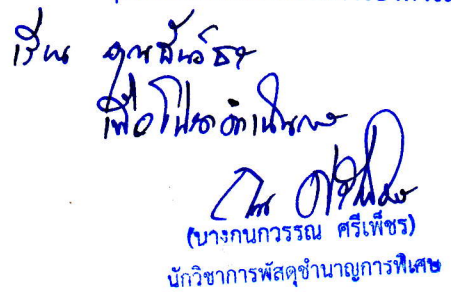 เรียน คุณ
เพื่อโปรดดำเนินการ
(นางกนกวรรณ ศรีเพ็ชร)
นักวิชาการพัสดุชำนาญการพิเศษ